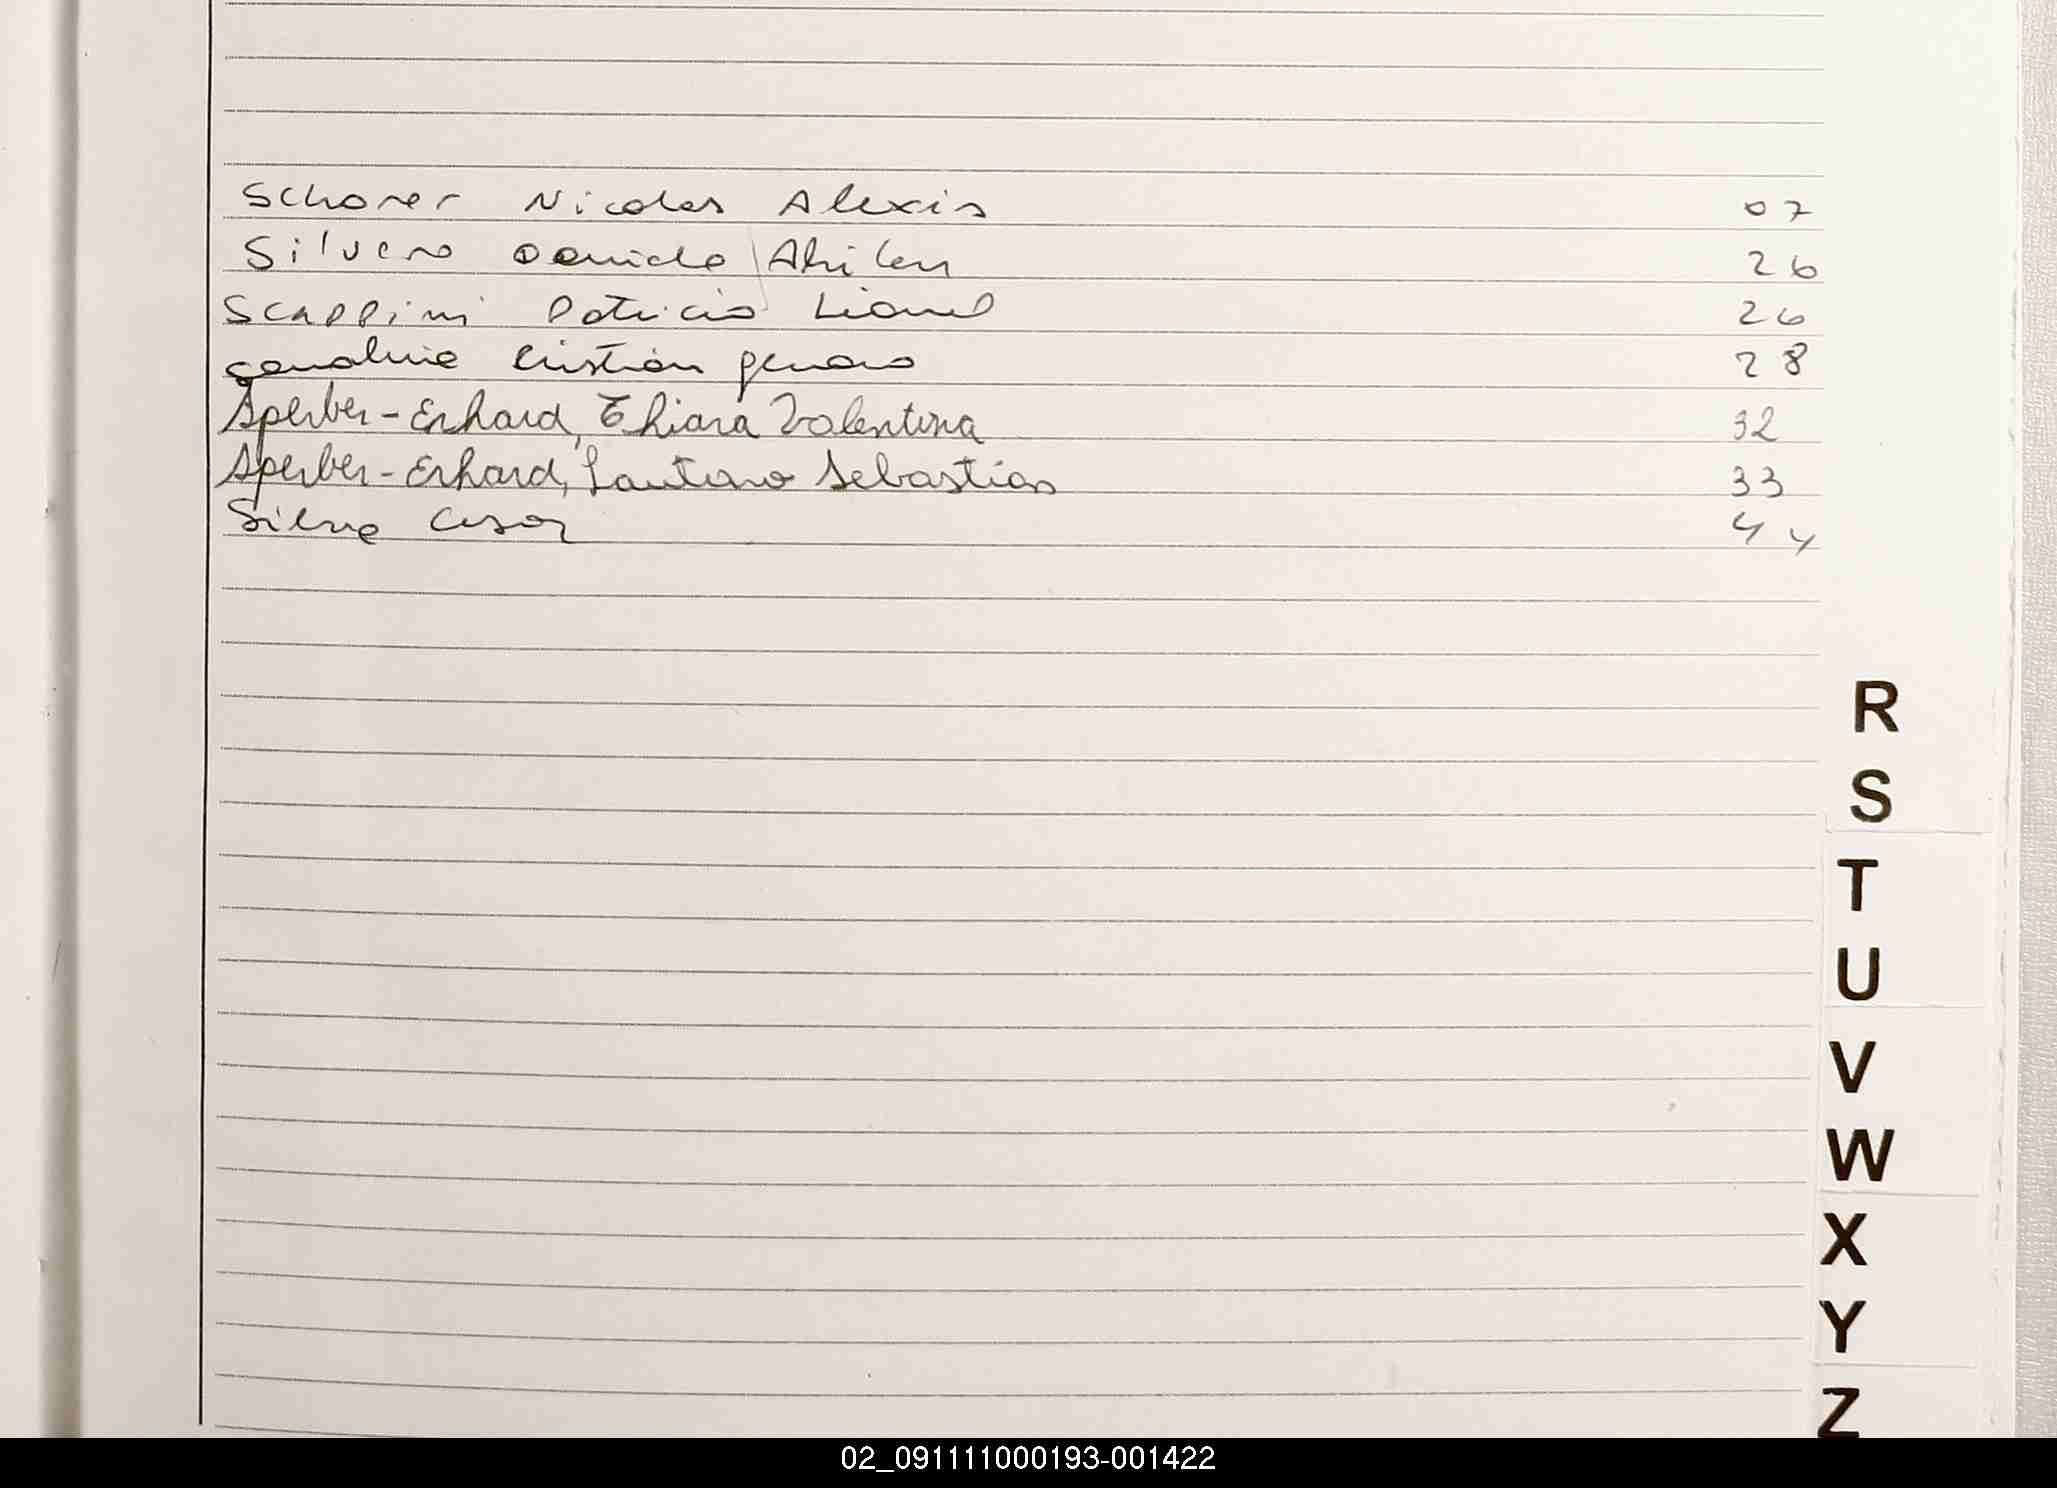 Schorer Nicolas Alexis 07
Silvero Daniela Ahilen 26
Scappini Patricio Lionel 26
Cristian genaro 28
Sperber-Erhard, Thiara Valentina 32
Sperber-Erhard, Lautaro Sebastian 33
Silva Cesar 44
R
S
T
U
V
W
X
Y
Z
02_091111000193-001422